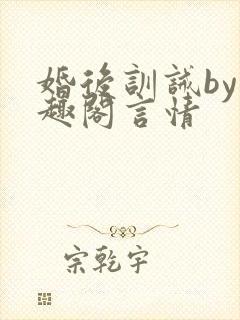 婚後訓誡by
趣閣言情
宗乾宇